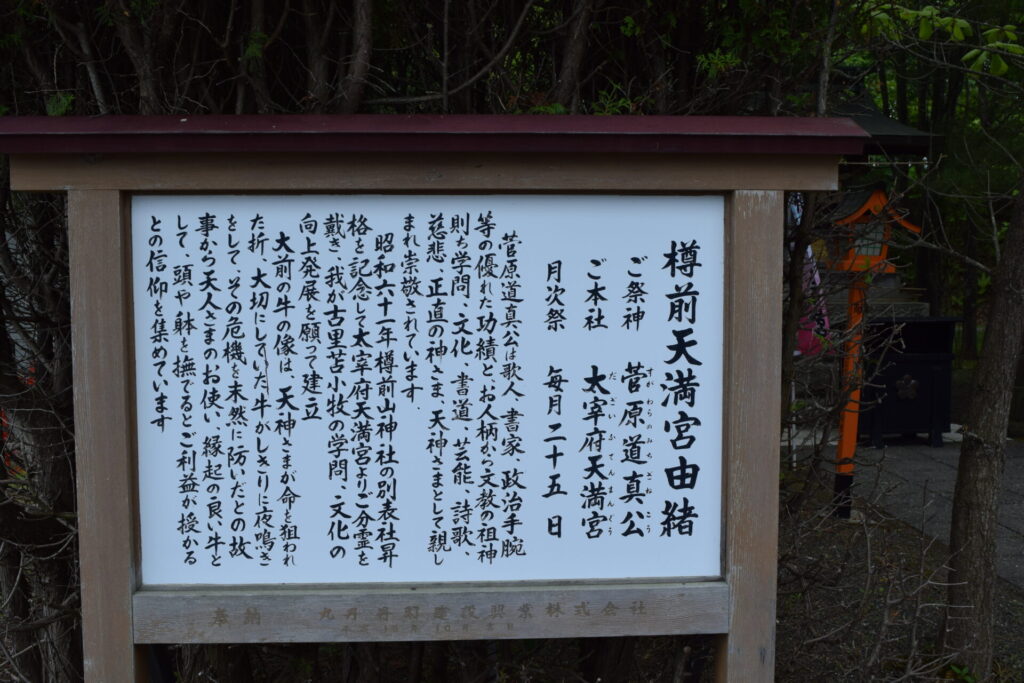 樽前天満宮由緒
ご祭神　菅原道真公
すがわらのみちざねこう
ご本社　太宰府天満宮
だざいふてんまんぐう
月次祭　毎月二十五日
菅原道真公は歌人、書家、政治手腕
等の優れた功績と、お人柄から文教の祖神
則ち学問、文化、書道、芸能、詩歌、
慈悲、正直の神さま、天神さまとして親し
まれ崇敬されています。
昭和六十一年樽前山神社の別表社昇
格を記念して太宰府天満宮よりご分霊を
戴き、我が古里苫小牧の学問、文化の
向上発展を願って建立
大前の牛の像は、天神さまが命を狙われ
た折、大切にしていた牛がしきりに夜鳴き
をして、その危機を未然に防いだとの故
事から天人さまのお使い、縁起の良い牛と
して、頭や躰を撫でるとご利益が授かる
との信仰を集めています。
奉納　丸丹　建設興業株式会社